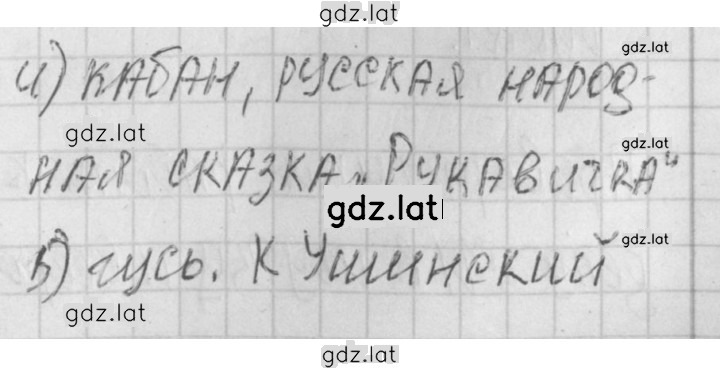 gdz.lat
и) КАБАН, РУССКАЯ НАРОД- gdz.lat
gdz.lat
НАЯ СКАЗКА „РУКАВИЧКА" gdz.lat
gdz.lat
5) гусь. К УШИНСКИЙ gdz.lat
gdz.lat
gdz.lat